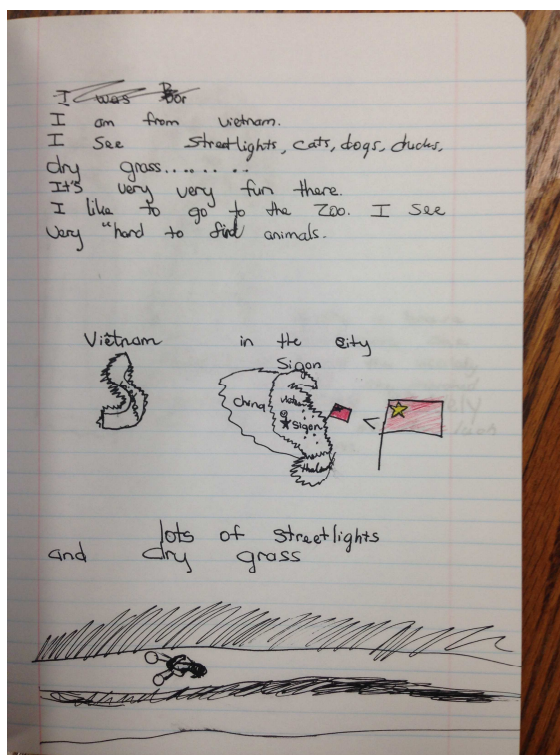 I was Bor
I am from vietnam.
I see streetlights, cats, dogs, ducks,
dry grass........
It's very very fun there.
I like to go to the Zoo. I see
very "hard to find animals.
Vietnam in the city
Sigon
china
Sigon
lots of streetlights
and dry grass